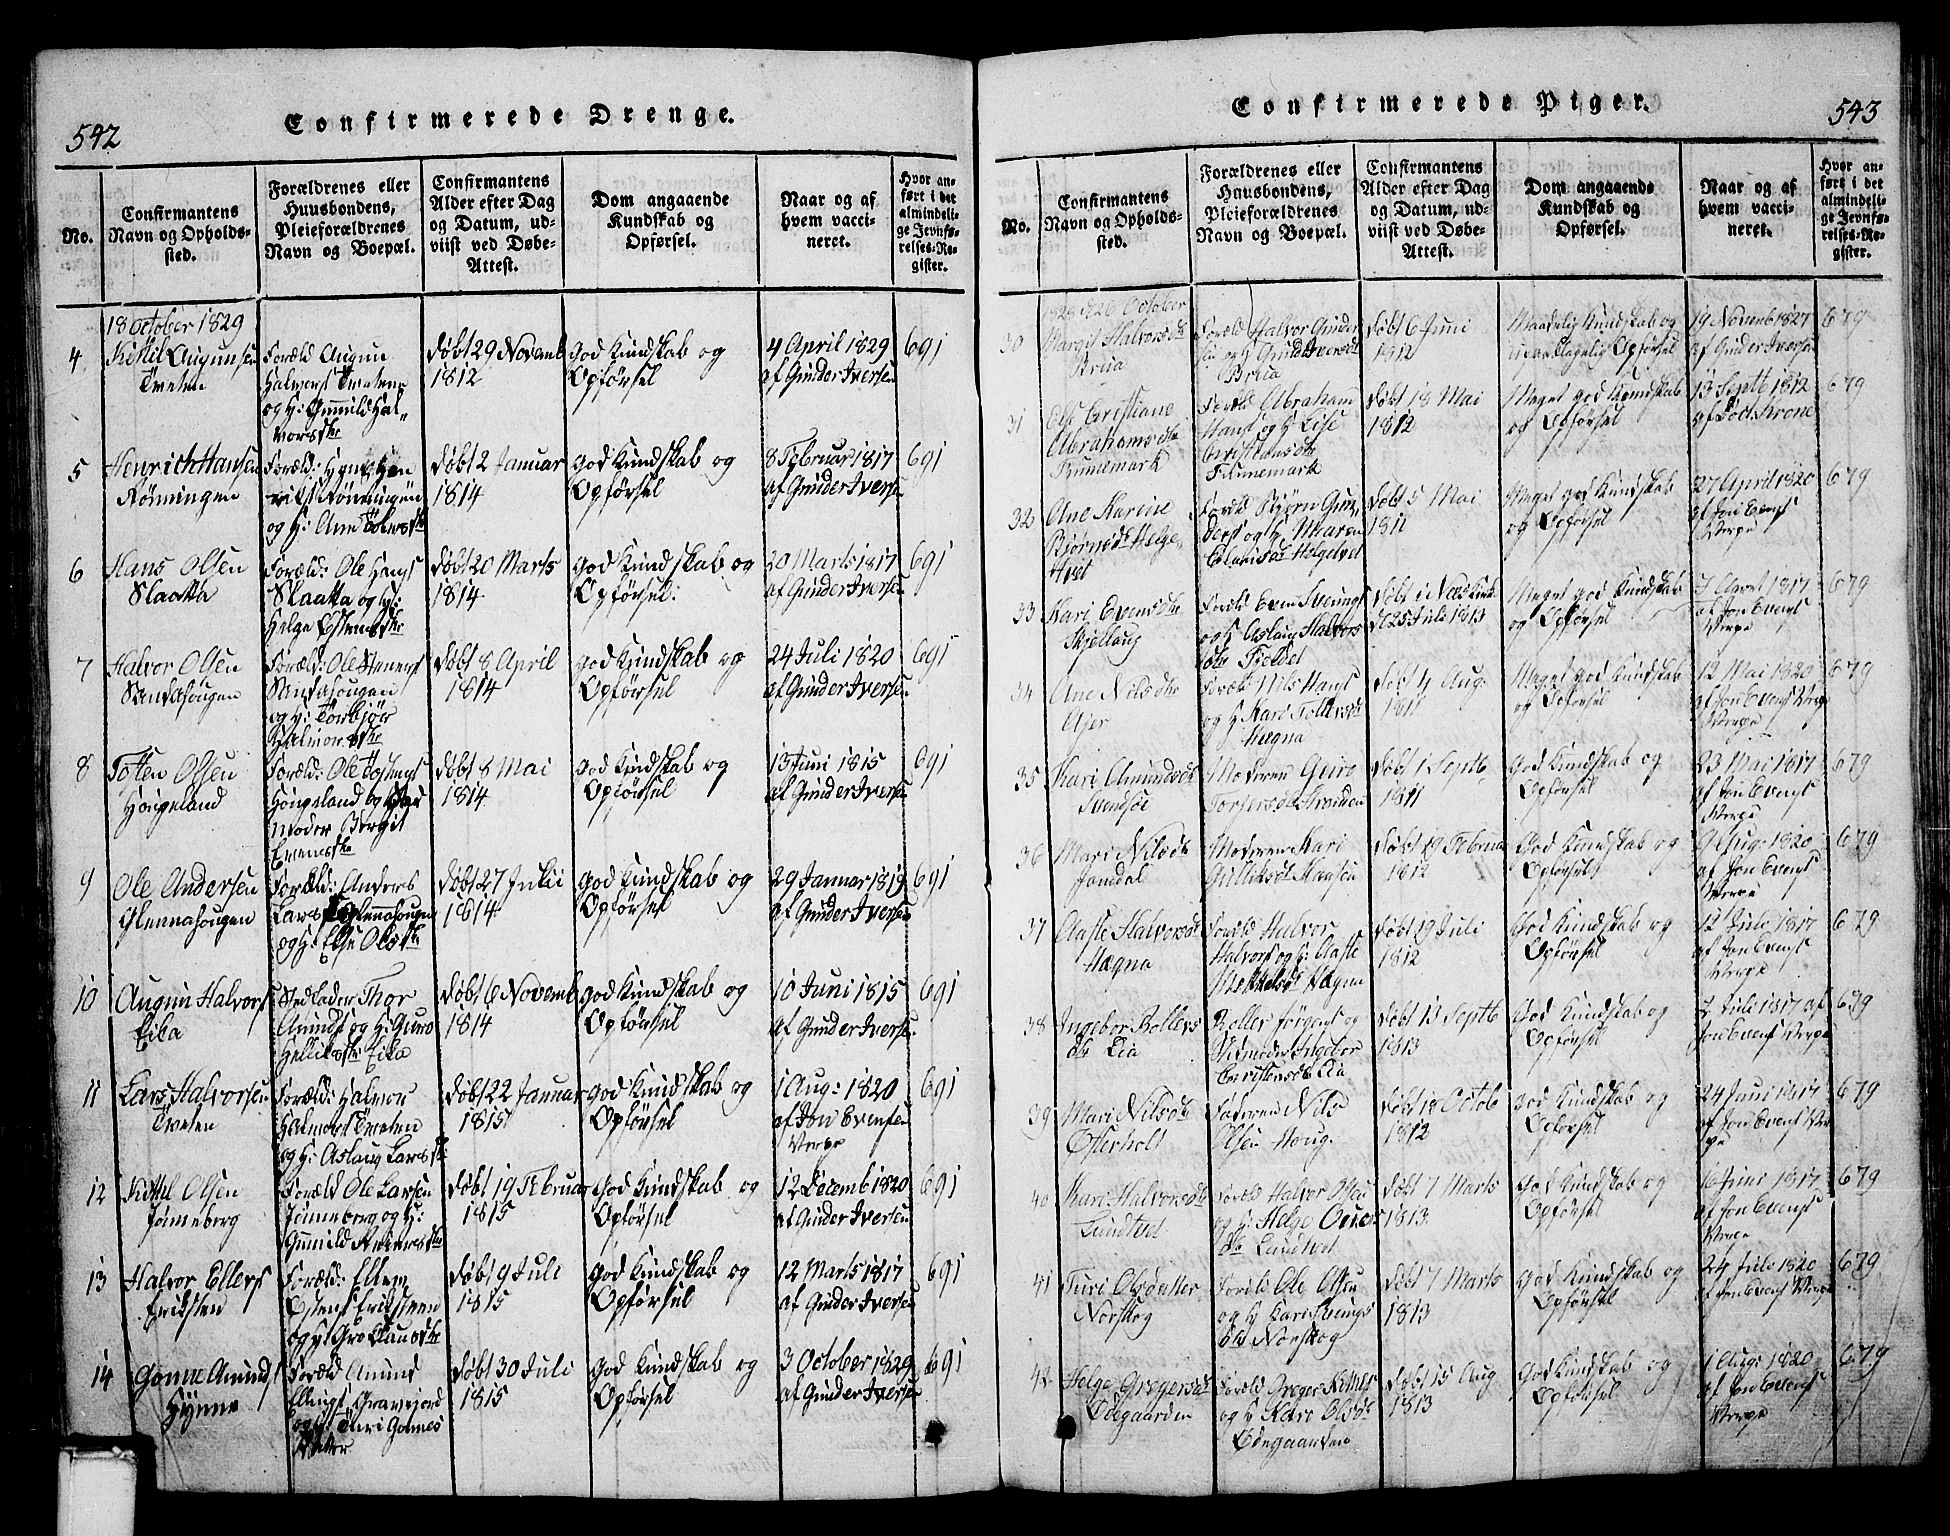 542
Confirmerede Drenge.
No.
Confirmantens
Navn og Opholds-
sted.
Forældrenes eller
Huusbondens,
Pleieforældrenes
Navn og Boepæl.
Confirmantens
Alder efter Dag
og Datum, ud-
viist ved Døbe-
Attest.
Dom angaaende
Kundskab og
Opførsel.
Naar og af
hvem vacci-
neret.
Hvor an-
ført i det
almindeli-
ge Jevnfø-
relses-Re-
gister.
18 October 1829
4
Kittil Augunsen
Tveten
Foræld Augun
Halvors Tvetene
og H: Gunnild Hal-
vorsdtr
døbt 29 Novemb
1812
God Kundskab og
Opførsel
4 April 1829
af Gunder Iversen
691
5
Henrich Hansen
Rønningen
Foræld:
Rønningen
og H: Ane
døbt 2 Januar
1814
God Kundskab og
Opførsel
8 Februar 1817
af Gunder Iversen
691
6
Hans Olsen
Slaatta
Foræld: Ole Hans
Slaatta og H:
Helge Østensdtr
døbt 20 Marts
1814
God Kundskab og
Opførsel:
20 Marts 1817
af Gunder Iversen
691
7
Halvor Olsen
Sandahougen
Foræld: Ole Steners
Sandahougen
og H: Torbjør
Halvorsdtr
døbt 8 April
1814
God Kundskab og
Opførsel
24 Juli 1820
af Gunder Iversen
691
8
Totten Olsen
Høugeland
Foræld: Ole
Høugeland og
moder Bergit
Evensdtr
døbt 8 Mai
1814
God Kundskab og
Opførsel
13 Juni 1815
af Gunder Iversen
691
9
Ole Andersen
Glennahougen
Foræld: Anders
Lars Glennahougen
og H: Else Olsdtr
døbt 27 Julii
1814
God Kundskab og
Opførsel
29 Januar 1819
af Gunder Iversen
691
10
Augun Halvors
Eika
Stedfader Thor
Amunds og H: Guro
Eika
døbt 6 Novemb
1814
God Kundskab og
Opførsel
10 Juni 1815
af Gunder Iversen
691
11
Lars Halvorsen
Tveten
Foræld: Halvor
Halvors Tveten
og H: Aslaug Larsdtr
døbt 22 Januar
1815
God Kundskab og
Opførsel
1 Aug: 1820
af Jon Evensen
Verpe
691
12
Kittil Olsen
Jønneberg
Foræld Ole Larsen
Jønneberg og H:
Gunnild
døbt 19 Februar
1815
God Kundskab og
Opførsel
12 Decemb 1820
af Gunder Iversen
691
13
Halvor Ellefs
Eriksten
Foræld: Ellef
Østens Eriksteen
og H: Gro Clausdtr
døbt 9 Juli
1815
God Kundskab og
Opførsel
12 Marts 1817
af Gunder Iversen
691
14
Gonne Amunds
Hynne
Foræld Amund
Ellings Gravejord
og H: Kari Gonnes
datter
døbt 30 Juli
1815
God Kundskab og
Opførsel
3 October 1829
af Gunder Iversen
691
543
Confirmerede Piger.
No.
Confirmantens
Navn og Opholds-
sted.
Forældrenes eller
Huusbondens,
Pleieforældrenes
Navn og Boepæl.
Confirmantens
Alder efter Dag
og Datum, ud-
viist ved Døbe-
Attest.
Dom angaaende
Kundskab og
Opførsel.
Naar og af
hvem vacci-
neret.
Hvor an-
ført i det
almindeli-
ge Jevnfø-
relses-Re-
gister.
1828 26 October
30
Margit Halvorsdtr
Brua
Foræld Halvor Gunder
sen og H Gunild Iversdtr
Brua
døbt 6 Juni
1812
Maadelig Kundskab og
upaaklagelig Opførsel
19 Novemb 1827
af Gunder Iversen
679
31
Else Cristiane
Abrahamsdtr
Funnemark
Foræld Abraham
Hans og H Lise
Christensdtr
Funnemark
døbt 18 Mai
1812
Meget god Kundskab
og Opførsel
13 Septb 1812
af Krone
679
32
Ane Karine
Bjørnsdtr Helge-
tvet
Foræld Bjørn Gun-
ders og H Maaren
Helgetvet
døbt 5 Mai
1811
Meget god Kundskab
og Opførsel
27 April 1820
af Jon Evens
Verpe
679
33
Kari Evensdtr
Skjellaug
Foræld Even Sverings
og H Aslaug Halvors
dtr Fjeldet
døbt i Næs Kirk
d 25 Juli 1813
Meget god Kundskab
og Opførsel
7 1817
af Jon Evens
Verpe
679
34
Ane Nilsdtr
Ajer
Foræld Nils Hans
og H Kari Tollefsdtr
Hægna
døbt 4 Aug:
1811
Meget god Kundskab
og Opførsel
12 Mai 1820
af Jon Evens Verpe
Verpe
679
35
Kari Amundsdtr
Svendsøe
Moderen Guro
Torjersdtr Stranden
døbt 1 Septb
1811
God Kundskab og
Opførsel
23 Mai 1817
af Jon Evens
Verpe
679
36
Mari Nilsdtr
Jondal
Moderen Kari
Gulliksdtr
døbt 19 Februa
1812
God Kundskab og
Opførsel
9 Aug: 1820
af Jon Evens
Verpe
679
37
Aaste Halvorsdtr
Hægna
Foræld Halvor
Halvors og H: Aaste
Mikkelsdtr Hægna
døbt 19 Juli
1812
God Kundskab og
Opførsel
12 Jule 1817
af Jon Evens
Verpe
679
38
Ingebor Rollefs
dtr Lia
Rollef Jørgens og
Stifmoder Ingebor
Cristensdtr Lia
døbt 13 Septb
1813
God Kundskab og
Opførsel
7 Juli 1817 af
Jon Evens Verpe
679
39
Mari Nilsdtr
Ofterholt
Faderen Nils
Olsen Houg.
døbt 18 Octob
1812
God Kundskab og
Opførsel
24 Juni 1817
af Jon Evens Ver
pe
679
40
Kari Halvorsdtr
Lundtvet
Foræld Halvor Olsen
og H: Helge
dtr Lundtvet
døbt 7 Marts
1813
God Kundskab og
Opførsel
16 Juni 1817
af Jon Evens
Verpe
679
41
Turi Olsdatter
Norskog
Foræld Ole Olsen
og H Kari Svenungs
dtr Norskog
døbt 7 Marts
1813
God Kundskab og
Opførsel
24 Jule 1820
af Jon Evens Verpe
679
42
Helge Gregersdtr
Ødegaarden
Foræld Greger
og H Karo Olsdtr
Ødegaarden
døbt 15 Aug
1813
God Kundskab og
Opførsel
1 Aug: 1820
af Jon Evens
Verpe
679